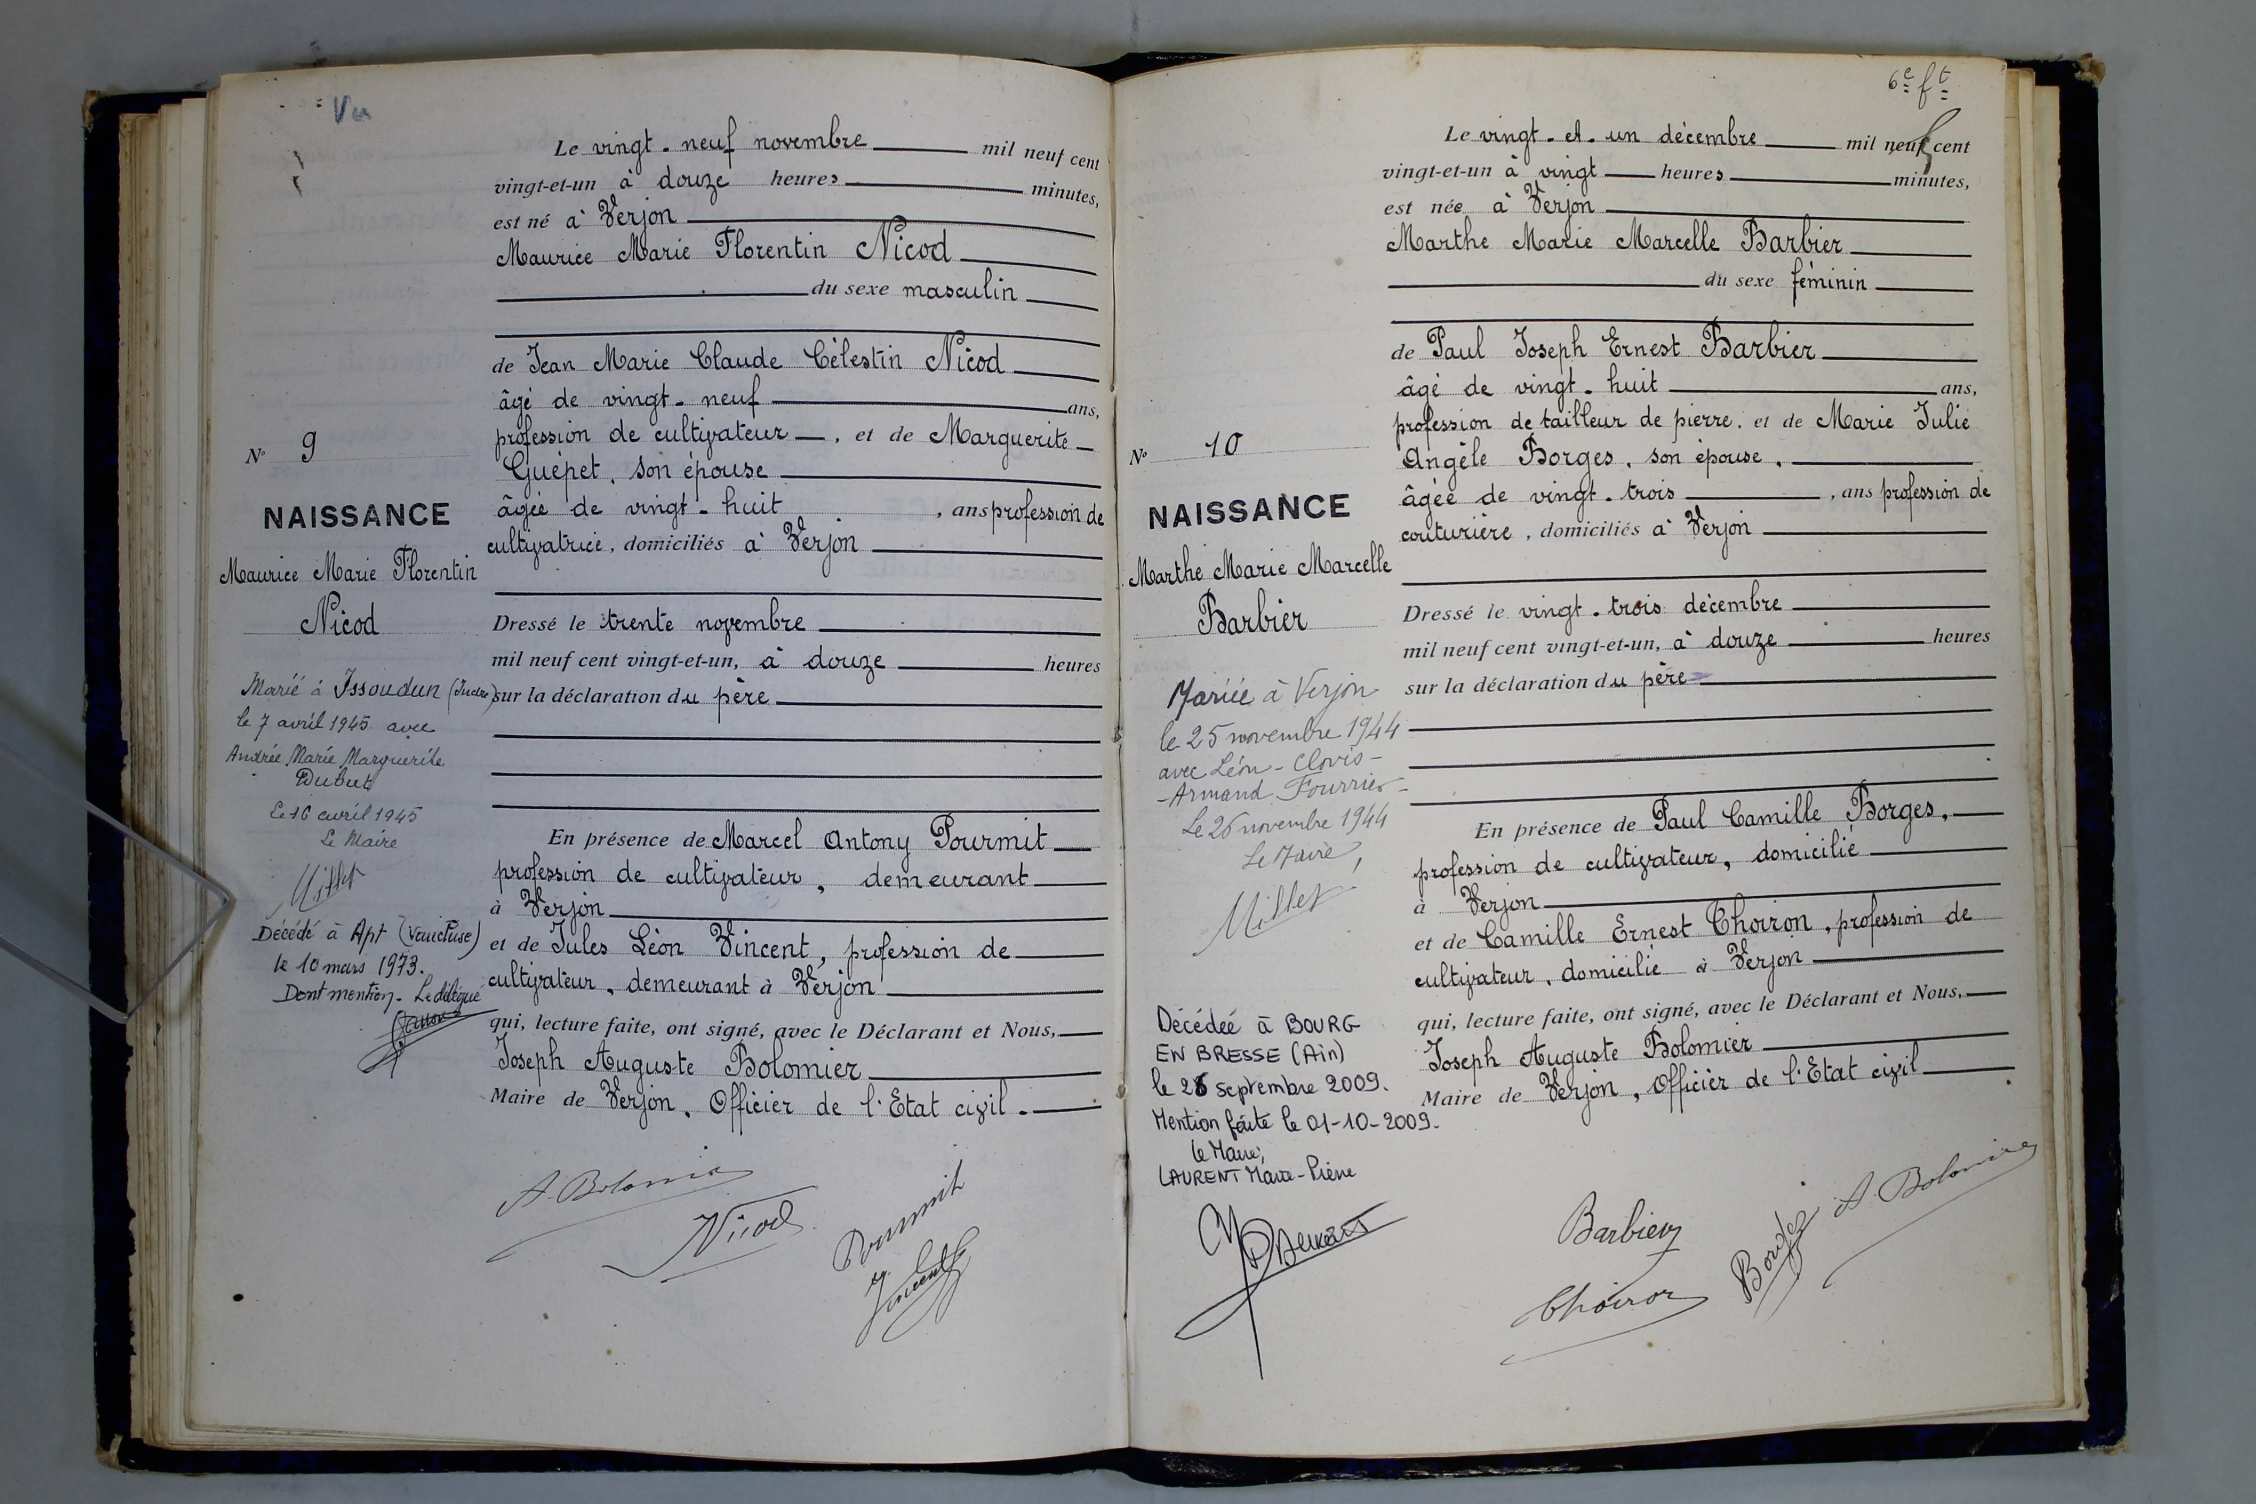 Vu
Le vingt-neuf novembre mil neuf cent
vingt-et-un à douze heures minutes,
est né à Verjon
Maurice Marie Florentin Nicod
du sexe masculin
de Jean Marie Claude Célestin Nicod
âgé de vingt-neuf ans,
profession de cultivateur, et de Marguerite
Guépet, son épouse
âgée de vingt-huit, ans profession de
cultivatrice, domiciliés à Verjon
Dressé le trente novembre
mil neuf cent vingt-et-un, à douze heures
sur la déclaration du père
En présence de Marcel Antony Pourmit
profession de cultivateur, demeurant
à Verjon
et de Jules Léon Vincent, profession de
cultivateur, demeurant à Verjon
qui, lecture faite, ont signé, avec le Déclarant et Nous,
Joseph Auguste Bolomier
Maire de Verjon, Officier de l'Etat civil.
A. Bolomier
Nicod
Pourmit
J. Vincent
N° 9
NAISSANCE
Maurice Marie Florentin
Nicod
Marié à Issoudun (Indre)
le 7 avril 1945 avec
Andrée Marie Marguerite
Dubut
Le 16 avril 1945
Le Maire
Millet
Décédé à Apt (Vaucluse)
le 10 mars 1973.
Dont mention - Le délégué
6e ft
Le vingt-et-un décembre mil neuf cent
vingt-et-un à vingt heures minutes,
est née à Verjon
Marthe Marie Marcelle Barbier
du sexe féminin
de Paul Joseph Ernest Barbier
âgé de vingt-huit ans,
profession de tailleur de pierre, et de Marie Julie
Angèle Borges, son épouse,
âgée de vingt-trois, ans profession de
couturière, domiciliés à Verjon
Dressé le vingt-trois décembre
mil neuf cent vingt-et-un, à douze heures
sur la déclaration du père
En présence de Paul Camille Borges,
profession de cultivateur, domicilié
à Verjon
et de Camille Ernest Choiron, profession de
cultivateur, domicilié à Verjon
qui, lecture faite, ont signé, avec le Déclarant et Nous,
Joseph Auguste Bolomier
Maire de Verjon, Officier de l'Etat civil
Barbier
Borges
A. Bolomier
Choiron
N° 10
NAISSANCE
Marthe Marie Marcelle
Barbier
Mariée à Verjon
le 25 novembre 1944
avec Léon-Clovis-
-Armand Fourrier-
Le 26 novembre 1944
Le Maire,
Millet
Décédée à BOURG
EN BRESSE (Ain)
le septembre 2009.
Mention faite le 01-10-2009.
le Maire,
LAURENT Marie-Pierre